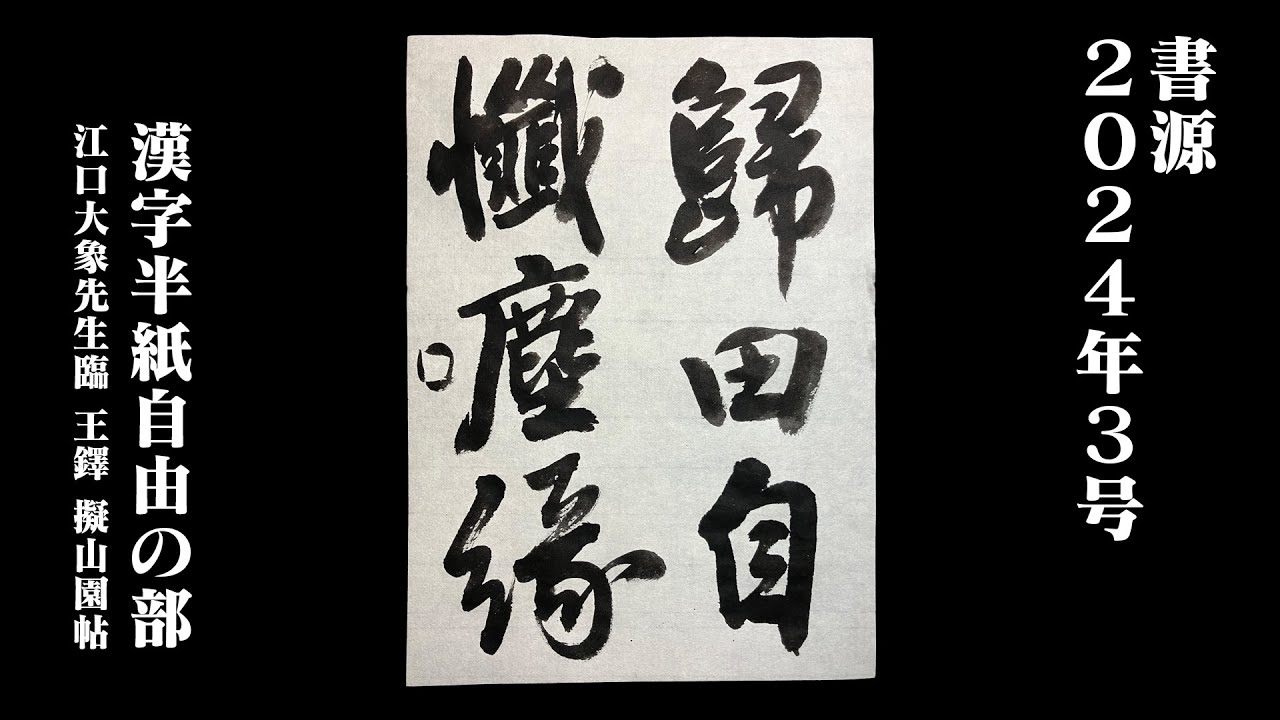 書源
２０２４年３号
歸田自
懺塵緣
漢字半紙自由の部
江口大象先生臨 王鐸 擬山園帖